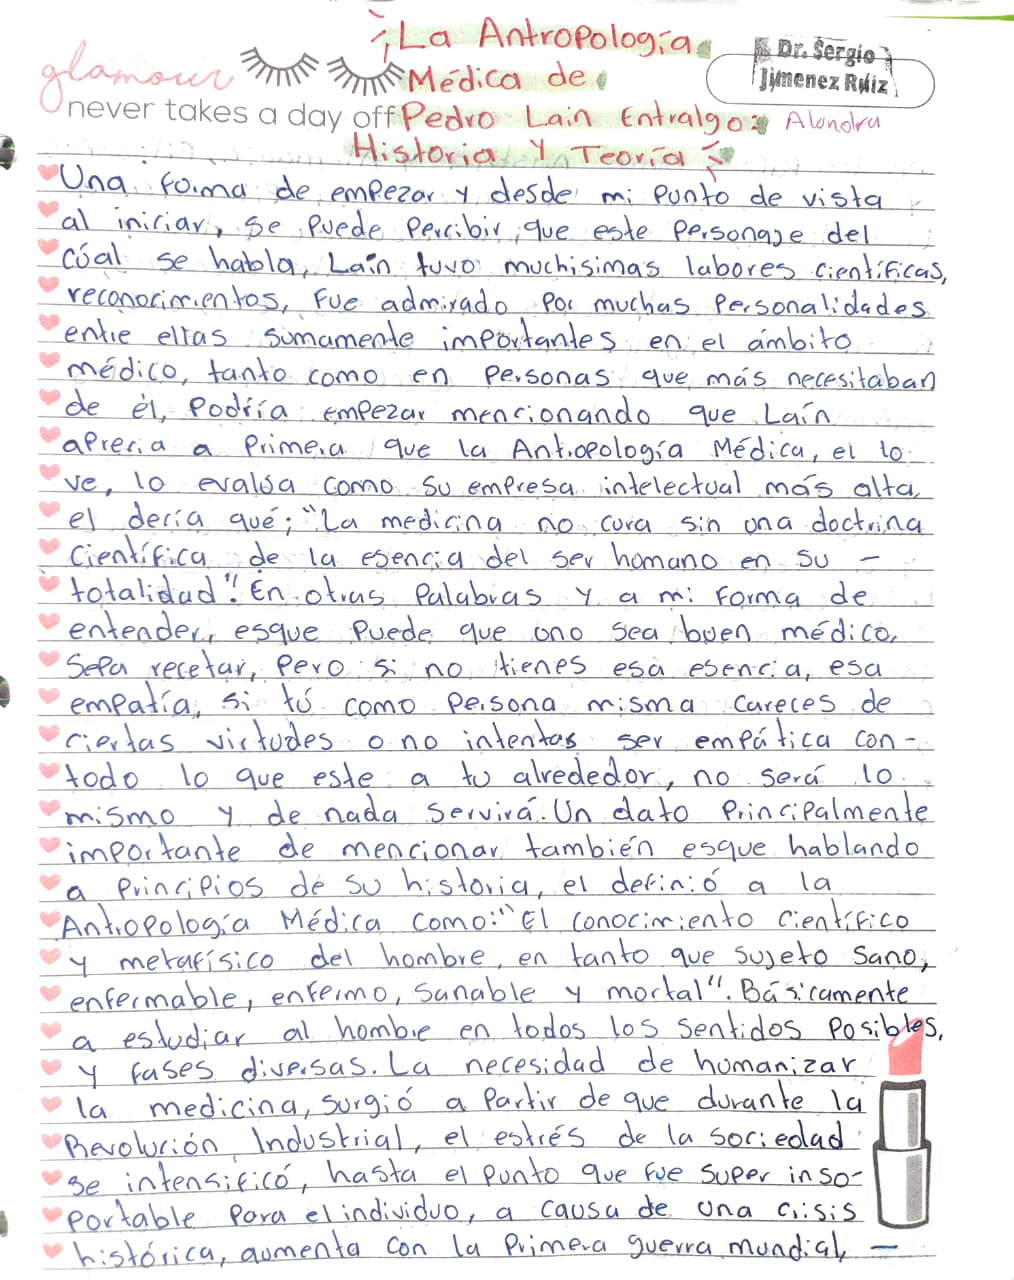 ¡La Antropología
Médica de
Pedro Lain Entralgo:
Historia y Teoría!
glamour
never takes a day off
Dr. Sergio
Jimenez Ruiz
Alondra
Una forma de empezar y desde mi punto de vista
al iniciar, se puede percibir, que este personaje del
cúal se habla, Laín tuvo muchisimas labores científicas,
reconocimientos, fue admirado por muchas personalidades
entre ellas sumamente importantes en el ámbito
médico, tanto como en personas que más necesitaban
de él, podría empezar mencionando que Laín
aprecia a primera que la Antropología Médica, el lo
ve, lo evalúa como su empresa intelectual más alta,
el decía qué; "La medicina no cura sin una doctrina
científica de la esencia del ser humano en su -
totalidad". En otras palabras y a mi forma de
entender, esque puede que uno sea buen médico,
sepa recetar, pero si no tienes esa esencia, esa
empatía, si tú como persona misma careces de
ciertas virtudes o no intentas ser empática con-
todo lo que este a tu alrededor, no será lo
mismo y de nada servirá. Un dato principalmente
importante de mencionar también esque hablando
a principios de su historia, el definió a la
Antropología Médica como: "El conocimiento científico
y metafísico del hombre, en tanto que sujeto sano,
enfermable, enfermo, sanable y mortal". Básicamente
a estudiar al hombre en todos los sentidos posibles,
y fases diversas. La necesidad de humanizar
la medicina, surgió a partir de que durante la
Revolución Industrial, el estrés de la sociedad
se intensificó, hasta el punto que fue super inso-
portable para el individuo, a causa de una crisis
histórica, aumenta con la primera guerra mundial, -